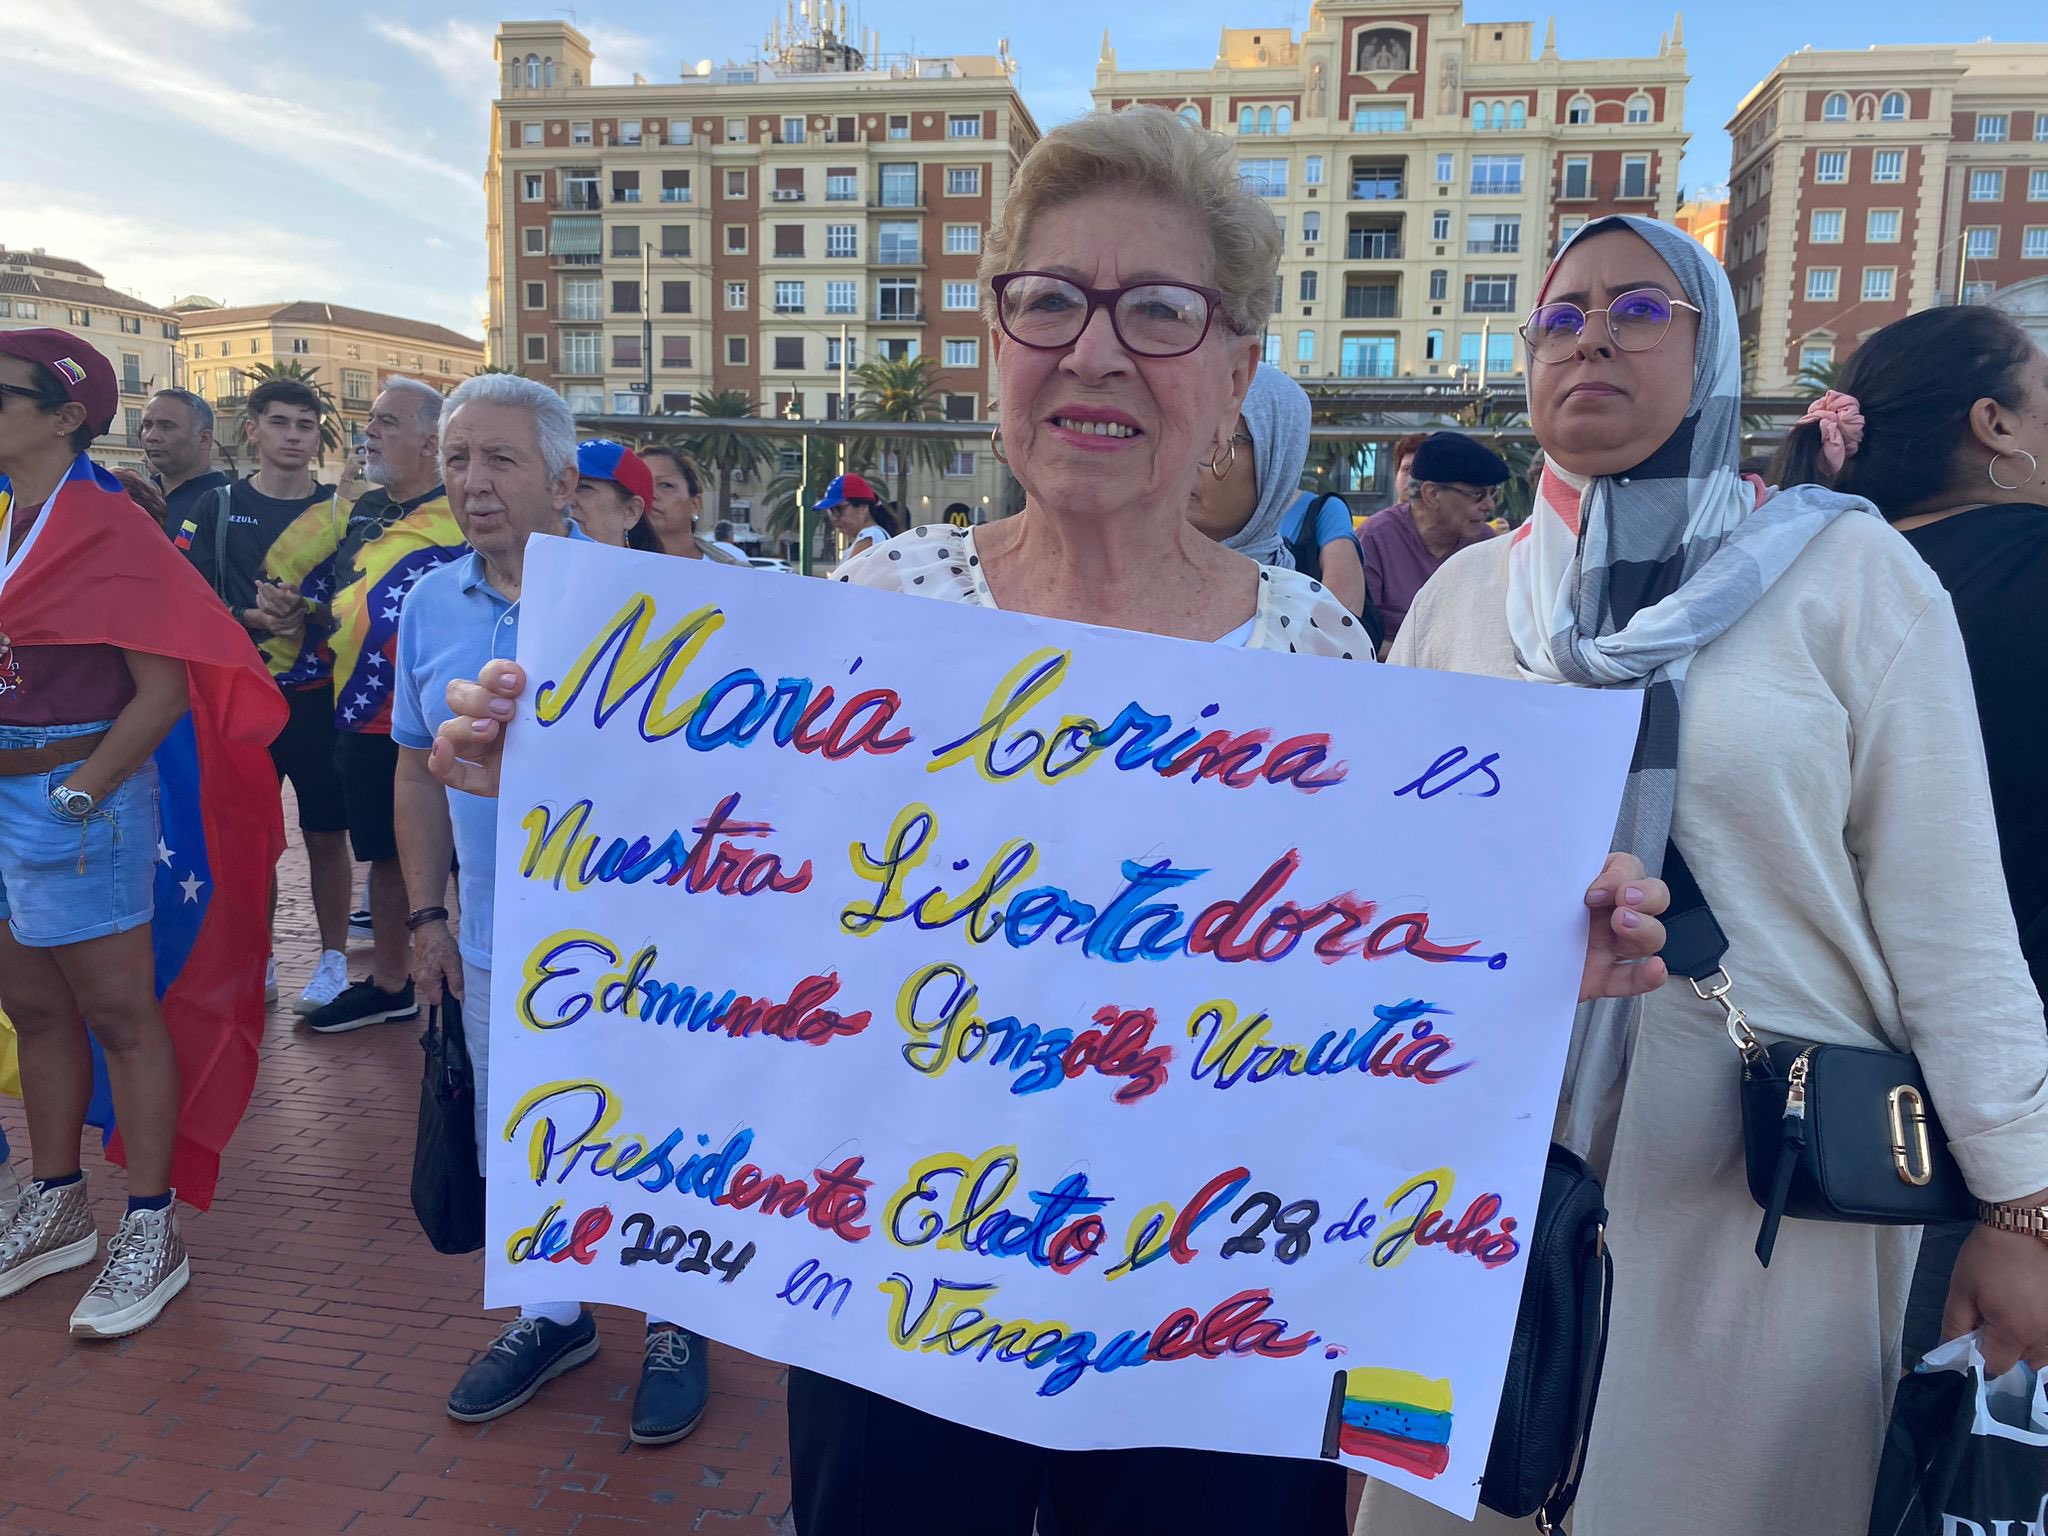 María Corina es
Nuestra Libertadora.
Edmundo González Urrutia
Presidente Electo el 28 de Julio
del 2024 en Venezuela.